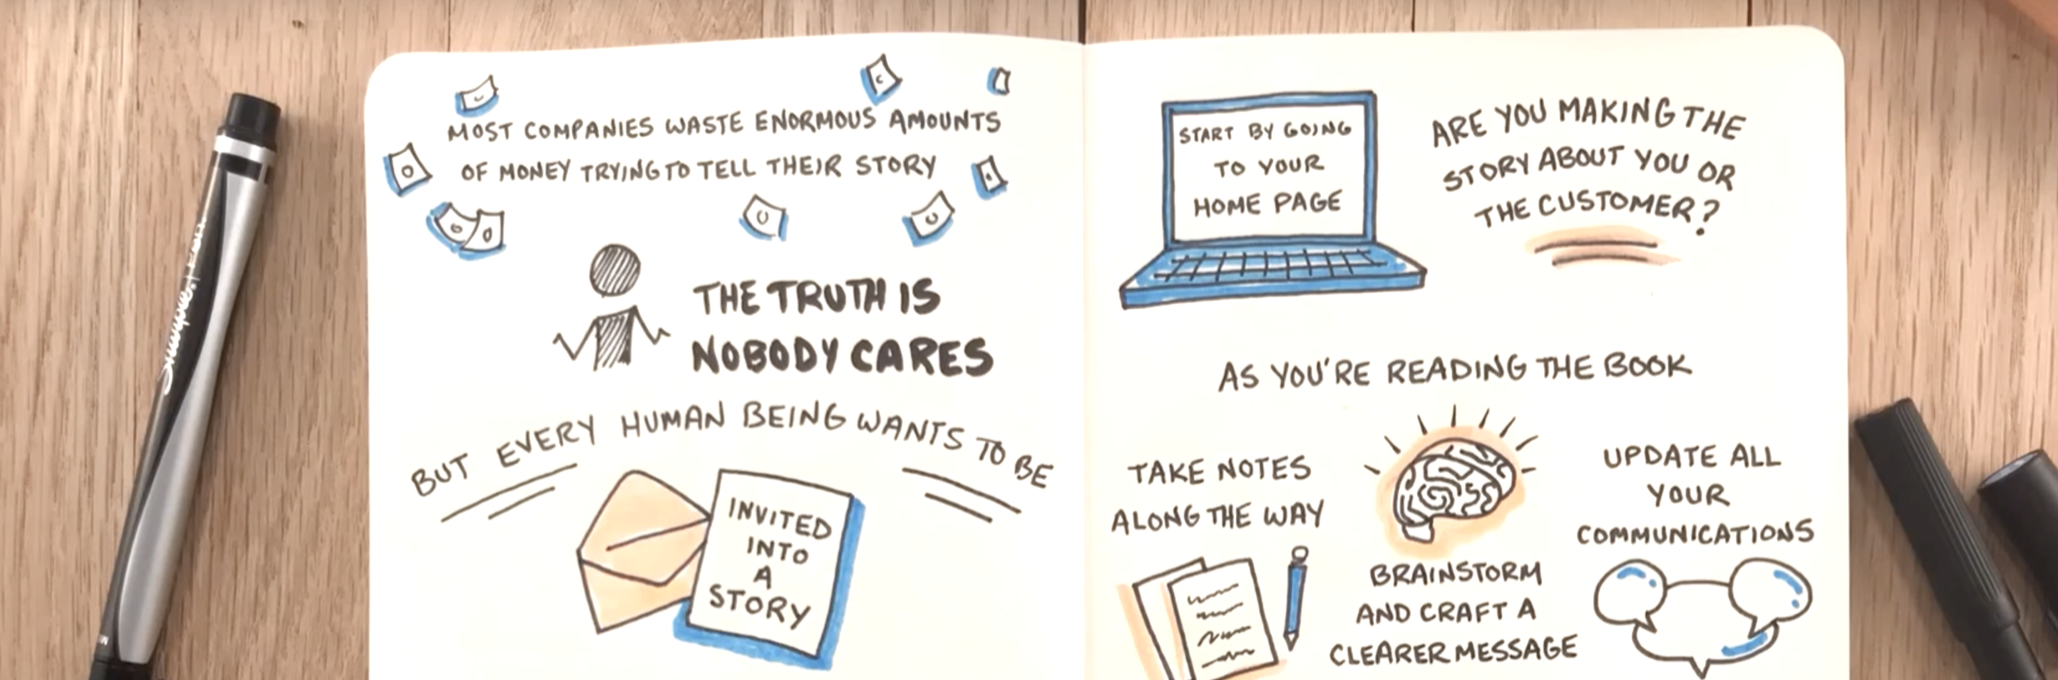 MOST COMPANIES WASTE ENORMOUS AMOUNTS
OF MONEY TRYING TO TELL THEIR STORY
THE TRUTH IS
NOBODY CARES
BUT EVERY HUMAN BEING WANTS TO BE
INVITED
INTO
A
STORY
START BY GOING
TO YOUR
HOME PAGE
ARE YOU MAKING THE
STORY ABOUT YOU OR
THE CUSTOMER?
AS YOU'RE READING THE BOOK
TAKE NOTES
ALONG THE WAY
BRAINSTORM
AND CRAFT A
CLEARER MESSAGE
UPDATE ALL
YOUR
COMMUNICATIONS
Sharpie